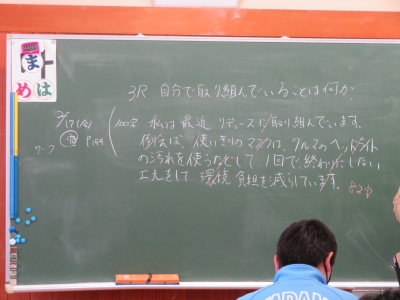 ま
めは
3R 自分で取り組んでいることは何か。
2/17(火)
P.159
ワーク
100字 私は最近 リデュースに取り組んでいます。
例えば、使いきりのマスクは、クルマのヘッドライト
の汚れを使うなどして、1回で終わりにしない
工夫をして 環境負担を減らしています。
82字